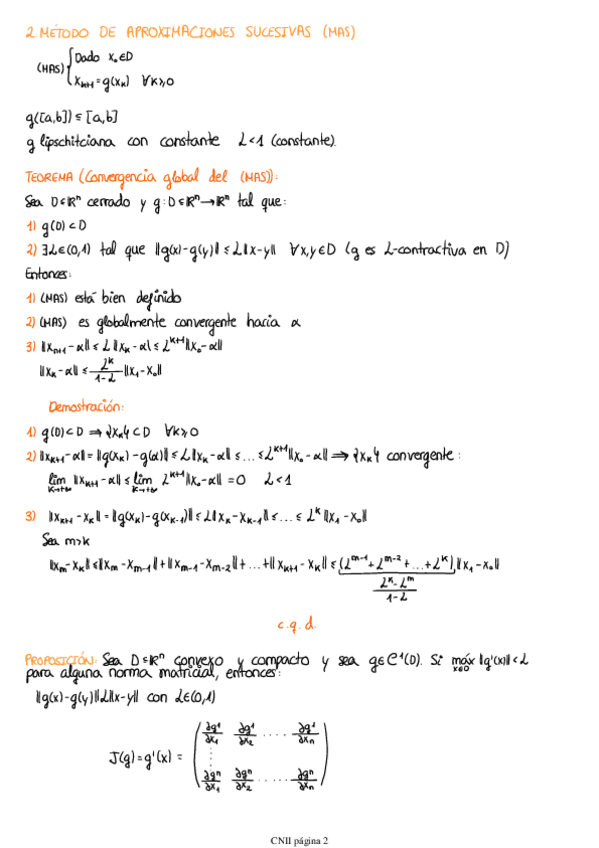 2. MÉTODO DE APROXIMACIONES SUCESIVAS (MAS)
(MAS) { Dado x₀∈D
xₖ₊₁ = g(xₖ) ∀k≥0
g([a,b]) ⊆ [a,b]
g lipschitciana con constante L<1 (constante).
TEOREMA (Convergencia global del (MAS)):
Sea D⊆ℝⁿ cerrado y g:D⊆ℝⁿ→ℝⁿ tal que:
1) g(D)⊂D
2) ∃L∈(0,1) tal que ‖g(x)-g(y)‖ ≤ L‖x-y‖ ∀x,y∈D (g es L-contractiva en D)
Entonces:
1) (MAS) está bien definido
2) (MAS) es globalmente convergente hacia α
3) ‖xₙ₊₁-α‖ ≤ L‖xₖ-α‖ ≤ Lᵏ⁺¹‖x₀-α‖
‖xₖ-α‖ ≤ Lᵏ/(1-L) ‖x₁-x₀‖
Demostración:
1) g(D)⊂D ⇒ {xₖ}⊂D ∀k≥0
2) ‖xₖ₊₁-α‖ = ‖g(xₖ)-g(α)‖ ≤ L‖xₖ-α‖ ≤ ... ≤ Lᵏ⁺¹‖x₀-α‖ ⇒ {xₖ} convergente:
lím k→+∞ ‖xₖ₊₁-α‖ ≤ lím k→+∞ Lᵏ⁺¹‖x₀-α‖ = 0 L<1
3) ‖xₖ₊₁-xₖ‖ = ‖g(xₖ)-g(xₖ₋₁)‖ ≤ L‖xₖ-xₖ₋₁‖ ≤ ... ≤ Lᵏ‖x₁-x₀‖
Sea m>k
‖xₘ-xₖ‖ ≤ ‖xₘ-xₘ₋₁‖+‖xₘ₋₁-xₘ₋₂‖+...+‖xₖ₊₁-xₖ‖ ≤ (Lᵐ⁻¹+Lᵐ⁻²+...+Lᵏ)‖x₁-x₀‖
(Lᵏ-Lᵐ)/(1-L)
c.q.d.
PROPOSICIÓN: Sea D⊆ℝⁿ convexo y compacto y sea g∈C¹(D). Si máx x∈D ‖g'(x)‖<L
para alguna norma matricial, entonces:
‖g(x)-g(y)‖L‖x-y‖ con L∈(0,1)
∂g¹/∂x₁ ∂g¹/∂x₂ .... ∂g¹/∂xₙ
J(g)=g'(x) = ⋮
∂gⁿ/∂x₁ ∂gⁿ/∂x₂ ...... ∂gⁿ/∂xₙ
CNII página 2